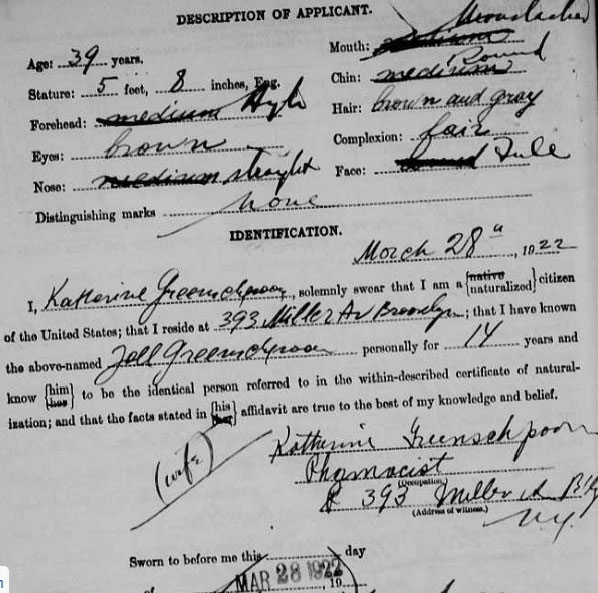 DESCRIPTION OF APPLICANT.
Age: 39 years.
Mouth: medium Moustache
Stature: 5 feet, 8 inches, Eng.
Chin: medium Round
Forehead: medium High
Hair: brown and gray
Eyes: brown
Complexion: fair
Nose: medium straight
Face: Full
Distinguishing marks none
IDENTIFICATION.
March 28th, 1922
I, Katherine Greenschpoon, solemnly swear that I am a {native naturalized} citizen
of the United States; that I reside at 393 Miller Av Brooklyn; that I have known
the above-named Joll Greenschpoon personally for 14 years and
know {him her} to be the identical person referred to in the within-described certificate of natural-
ization; and that the facts stated in {his her} affidavit are true to the best of my knowledge and belief.
Katherine Greenschpoon
(wife)
Pharmacist
(Occupation.)
393 Miller Av Bklyn
(Address of witness.)
N.Y.
Sworn to before me this day
MAR 28 1922
of 19